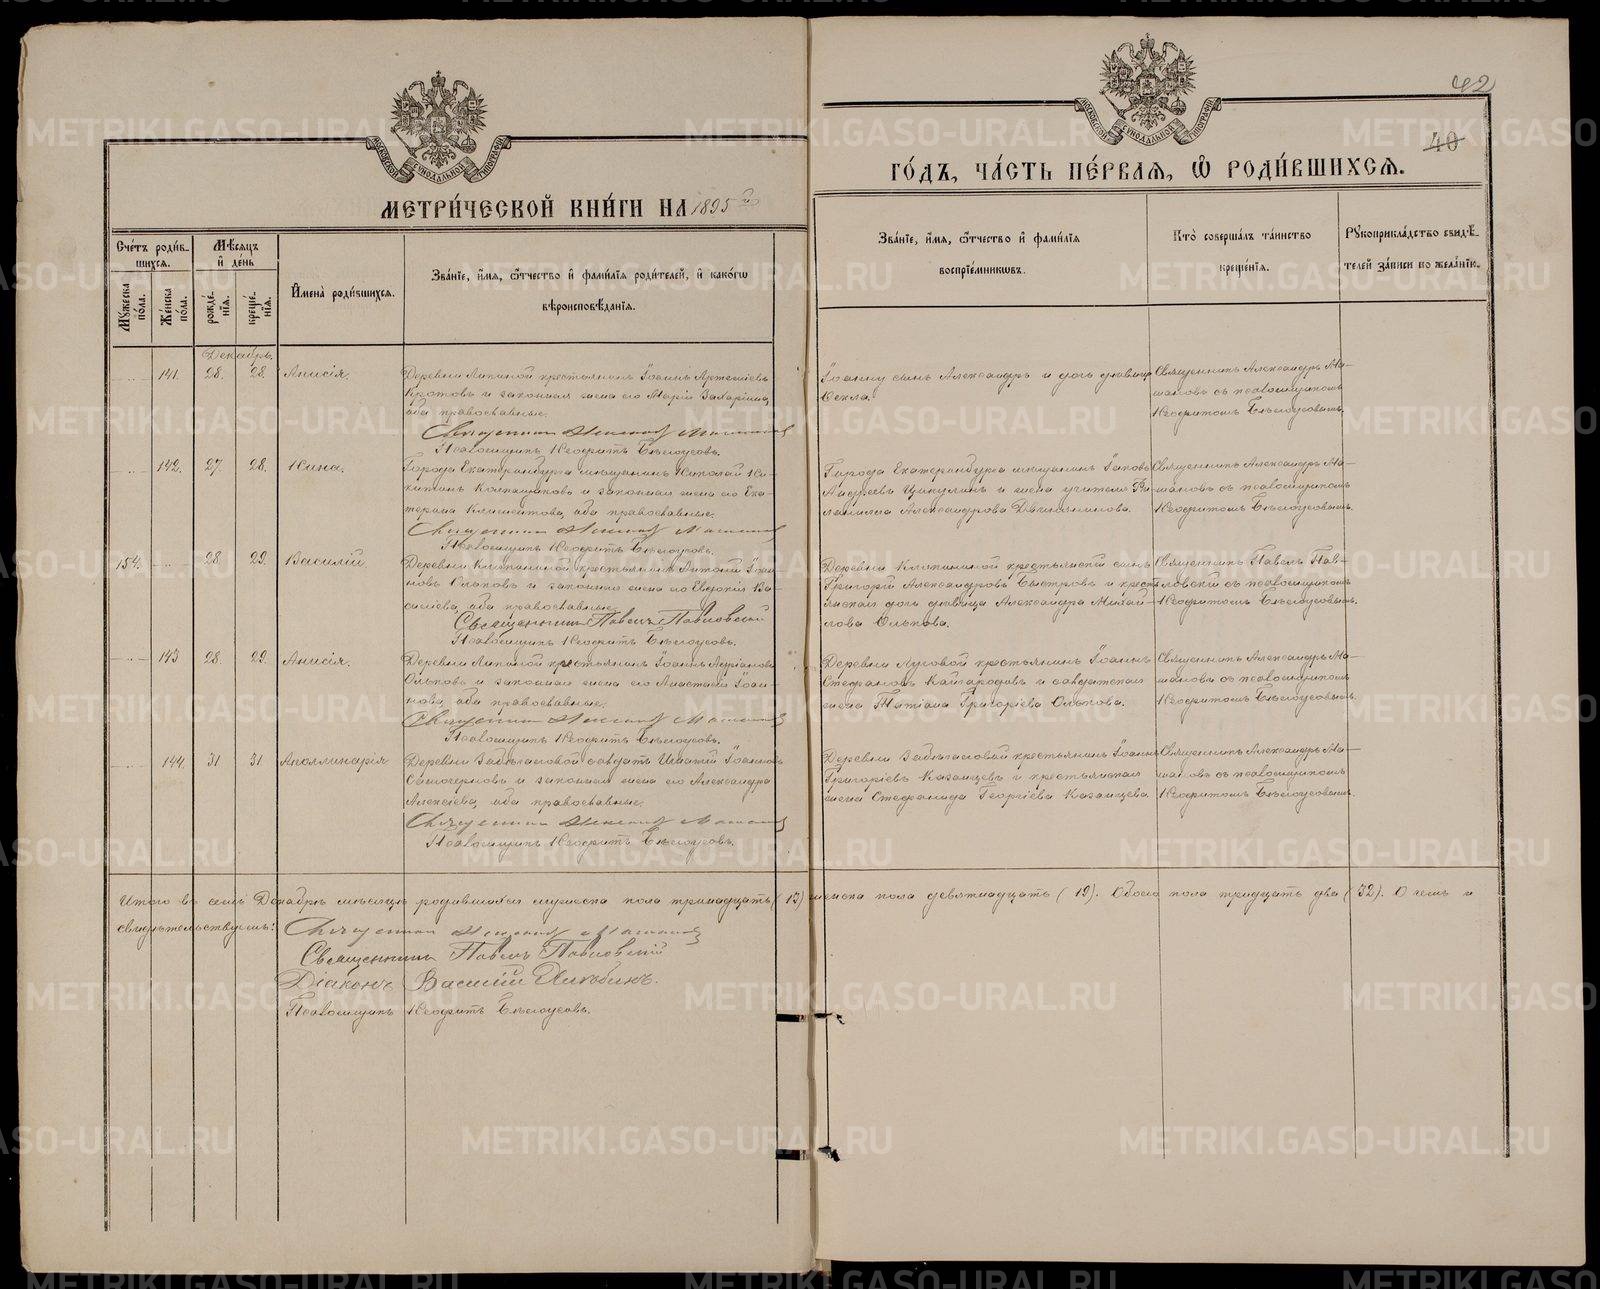 42
40
МЕТРИ́ЧЕСКОЙ КНИ́ГИ НА 1895 й
ГО́ДЪ, ЧА́СТЬ ПЕ́РВАѦ, Ѽ РОДИ́ВШИХСѦ.
Сче́тъ роди́в-
шихсѧ.
Мꙋжеска по́ла.
Же́нска по́ла.
Мѣ́сѧцъ и҆ де́нь
рожде́-
нїѧ.
креще́-
нїѧ.
И҆мена̀ роди́вшихсѧ.
Зва́нїе, и҆́мѧ, ѻ҆́тчество и҆ фами́лїѧ роди́телей, и҆ како́гѡ
вѣроисповѣ́данїѧ.
Зва́нїе, и҆́мѧ, ѻ҆́тчество и҆ фами́лїѧ
воспрїе́мникѡвъ.
Кто̀ соверша́лъ та́инство
креще́нїѧ.
Рꙋкоприкла́дство свидѣ́-
телей за́писи по жела́нїю.
Декабрь.
141. 28. 28. Анисія.
Деревни Липиной крестьянинъ Іоаннъ Артеміевъ
Кротовъ и законная жена его Марія Захаріина,
оба православные.
Священникъ Александръ Машановъ
Псаломщикъ Неофитъ Бѣлоусовъ.
Іоанну сынъ Александръ и дочь дѣвица
Ѳекла.
Священникъ Александръ Ма-
шановъ съ псаломщикомъ
Неофитомъ Бѣлоусовымъ.
142. 27. 28. Нина.
Города Екатеринбурга мѣщанинъ Николай Ни-
китинъ Колпащиковъ и законная жена его Ека-
терина Климентова, оба православные.
Священникъ Александръ Машановъ
Псаломщикъ Неофитъ Бѣлоусовъ.
Города Екатеринбурга мѣщанинъ Іаковъ
Андреевъ Цикулинъ и жена учителя
Александрова
Священникъ Александръ Ма-
шановъ съ псаломщикомъ
Неофитомъ Бѣлоусовымъ.
154. 28. 29. Василій.
Деревни Клепининой крестьянинъ Антоній Іоан-
новъ Ольховъ и законная жена его Евдокія Ва-
силіева, оба православные.
Священникъ Павелъ Павловскій
Псаломщикъ Неофитъ Бѣлоусовъ.
Деревни Клепининой крестьянскій сынъ
Григорій Александровъ Быстровъ и кресть-
янская дочь дѣвица Александра Михай-
лова Ольхова.
Священникъ Павелъ Пав-
ловскій съ псаломщикомъ
Неофитомъ Бѣлоусовымъ.
143 28. 29. Анисія.
Деревни Липиной крестьянинъ Іоаннъ Адріановъ
Ольховъ и законная жена его Анастасія Іоан-
нова, оба православные.
Священникъ Александръ Машановъ
Псаломщикъ Неофитъ Бѣлоусовъ.
Деревни Луговой крестьянинъ Іоаннъ
Стефановъ Кайгородовъ и солдатская
жена Татіана Григоріева Ольхова.
Священникъ Александръ Ма-
шановъ съ псаломщикомъ
Неофитомъ Бѣлоусовымъ.
144. 31 31 Аполлинарія
Деревни солдатъ Игнатій Іоанновъ
и законная жена его Александра
Алексіева, оба православные.
Священникъ Александръ Машановъ
Псаломщикъ Неофитъ Бѣлоусовъ.
Деревни крестьянинъ Іоаннъ
Григоріевъ Казанцевъ и крестьянская
жена Стефанида Георгіева Казанцева.
Священникъ Александръ Ма-
шановъ съ псаломщикомъ
Неофитомъ Бѣлоусовымъ.
Итого въ семъ Декабрѣ мѣсяцѣ родившихся мужеска пола тринадцать (13) женска пола девятнадцать (19). Обоего пола тридцать два (32). О чемъ и
свидѣтельствуемъ:
Священникъ Александръ Машановъ
Священникъ Павелъ Павловскій
Діаконъ Василій
Псаломщикъ Неофитъ Бѣлоусовъ.
METRIKI.GASO-URAL.RU